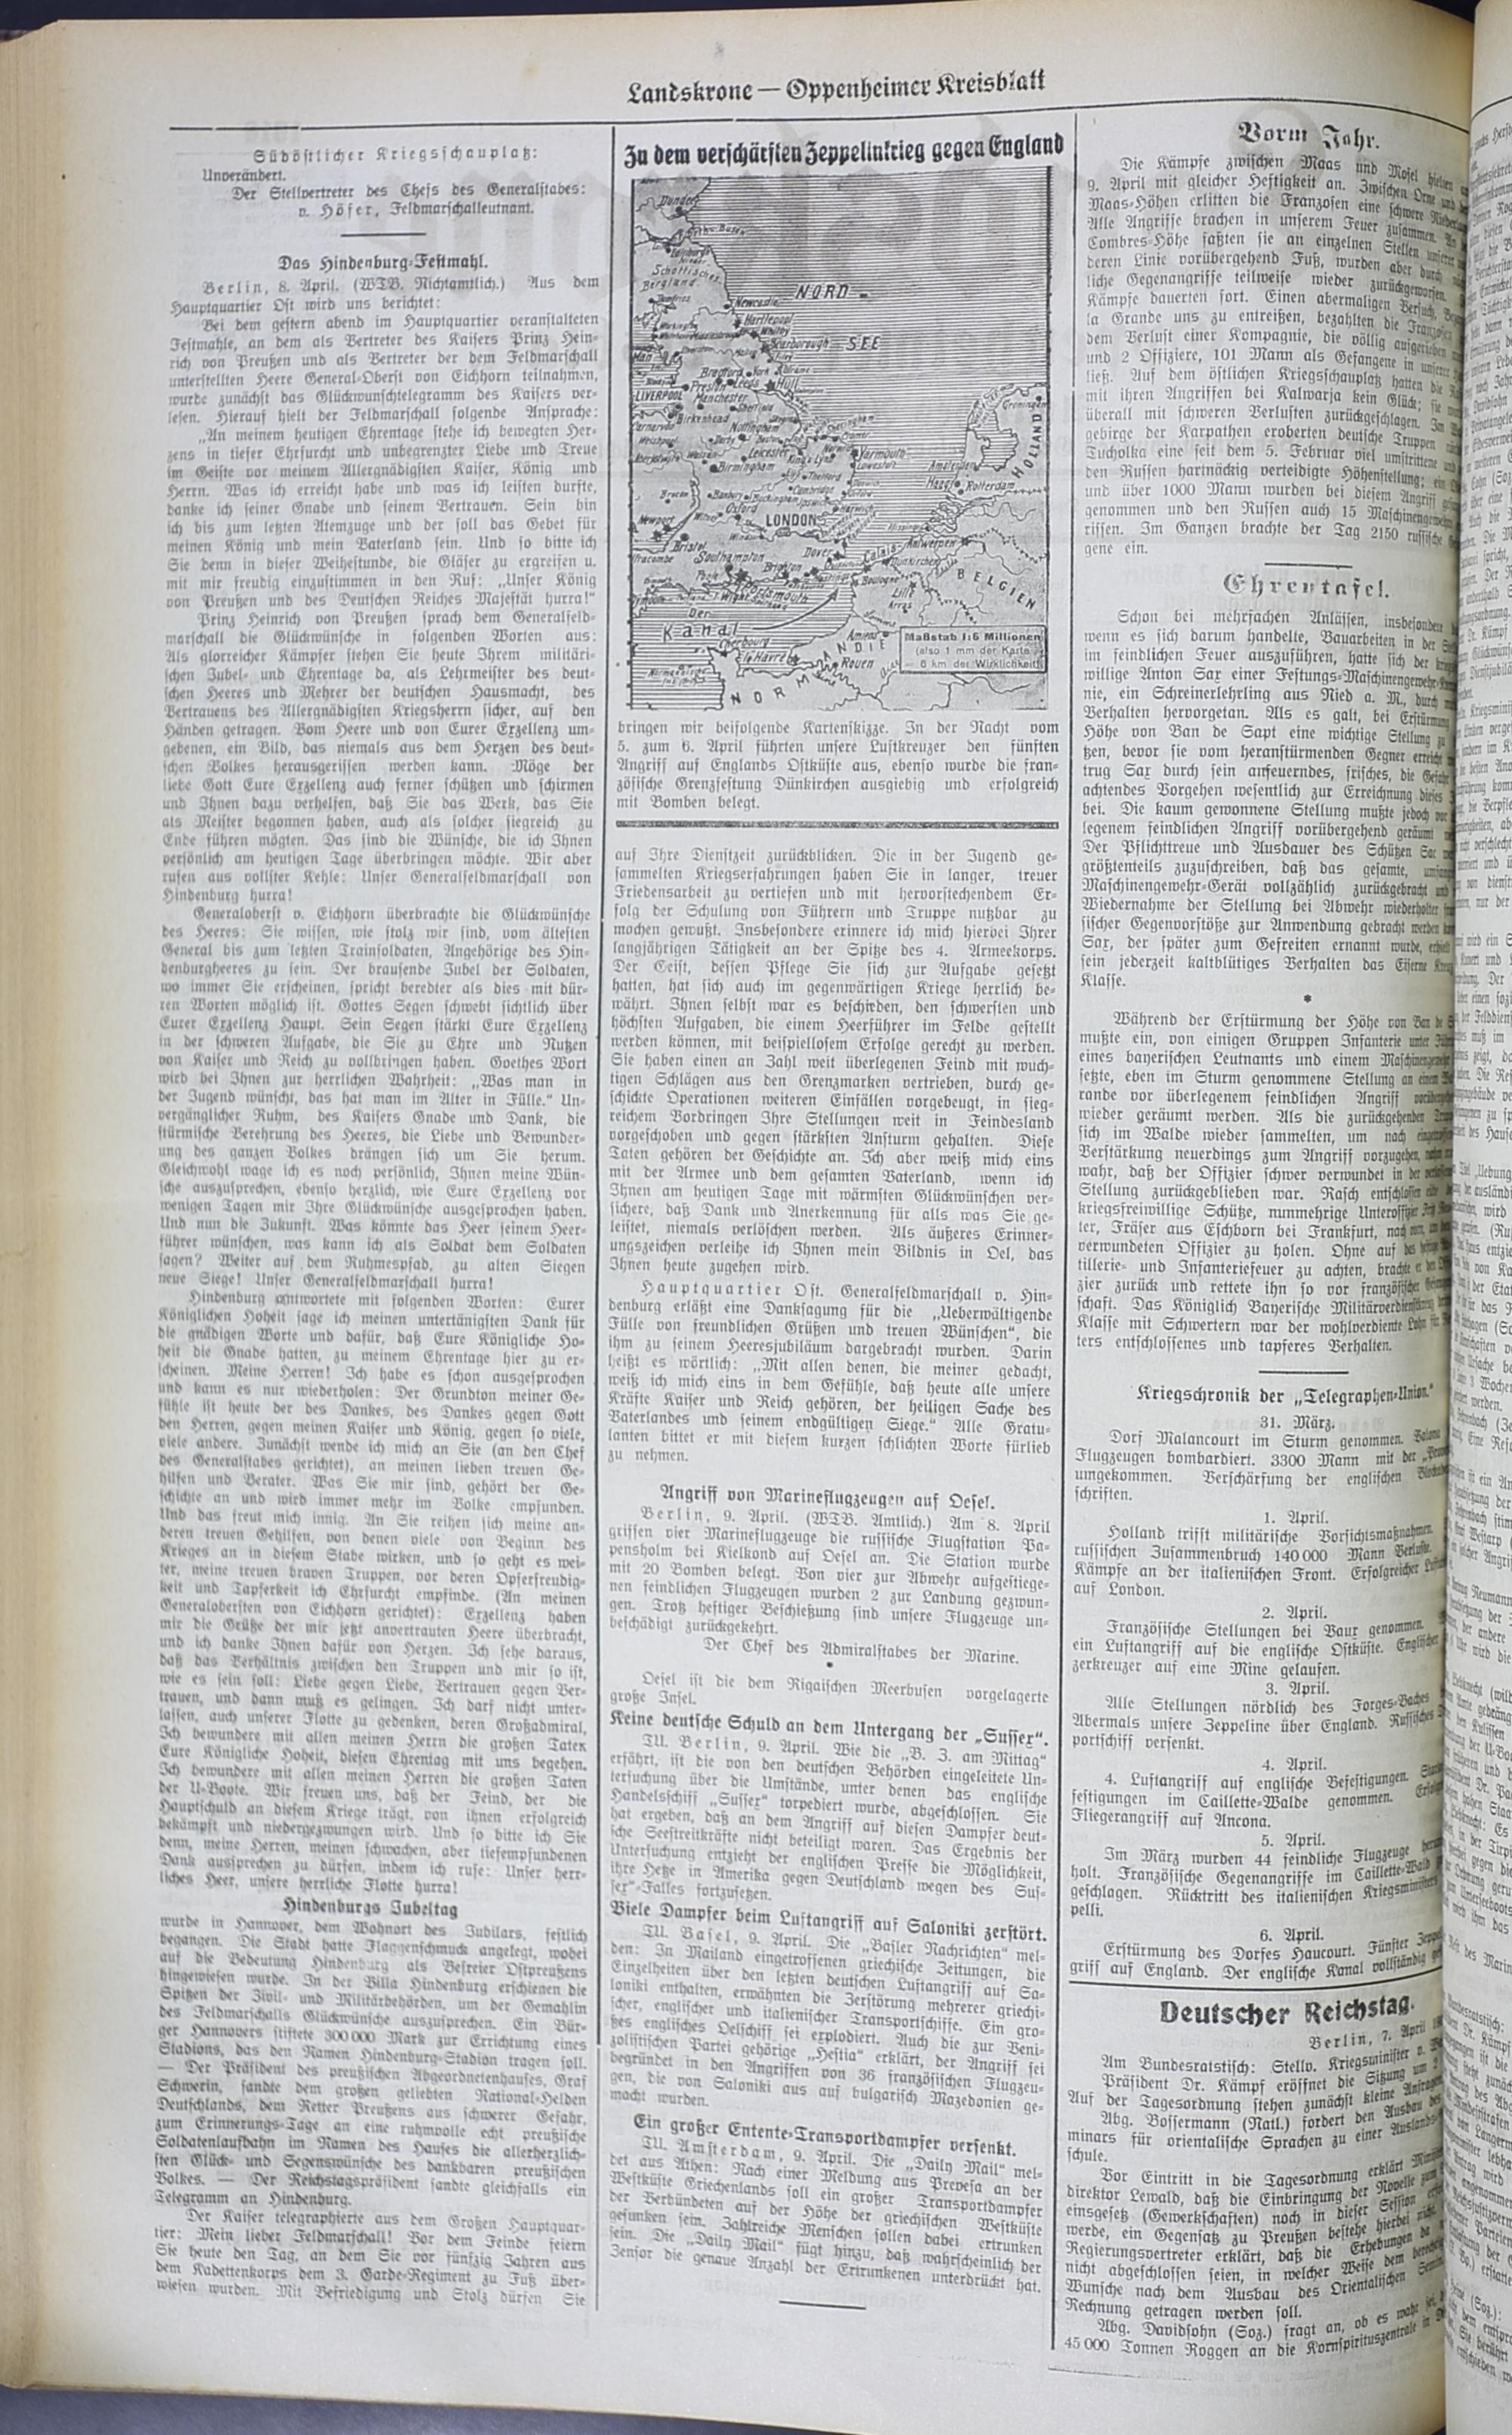 Landskrone — Oppenheimer Kreisblatt
Südöstlicher Kriegsschauplatz:
Unverändert.
Der Stellvertreter des Chefs des Generalstabes:
v. Höfer, Feldmarschalleutnant.
Das Hindenburg-Festmahl.
Berlin, 8. April. (WTB. Nichtamtlich.) Aus dem
Hauptquartier Ost wird uns berichtet:
Bei dem gestern abend im Hauptquartier veranstalteten
Festmahle, an dem als Vertreter des Kaisers Prinz Hein-
rich von Preußen und als Vertreter der dem Feldmarschall
unterstellten Heere General-Oberst von Eichhorn teilnahmen,
wurde zunächst das Glückwunschtelegramm des Kaisers ver-
lesen. Hierauf hielt der Feldmarschall folgende Ansprache:
„An meinem heutigen Ehrentage stehe ich bewegten Her-
zens in tiefer Ehrfurcht und unbegrenzter Liebe und Treue
im Geiste vor meinem Allergnädigsten Kaiser, König und
Herrn. Was ich erreicht habe und was ich leisten durfte,
danke ich seiner Gnade und seinem Vertrauen. Sein bin
ich bis zum letzten Atemzuge und der soll das Gebet für
meinen König und mein Vaterland sein. Und so bitte ich
Sie denn in dieser Weihestunde, die Gläser zu ergreifen u.
mit mir freudig einzustimmen in den Ruf: „Unser König
von Preußen und des Deutschen Reiches Majestät hurra!"
Prinz Heinrich von Preußen sprach dem Generalfeld-
marschall die Glückwünsche in folgenden Worten aus:
Als glorreicher Kämpfer stehen Sie heute Ihrem militäri-
schen Jubel- und Ehrentage da, als Lehrmeister des deut-
schen Heeres und Mehrer der deutschen Hausmacht, des
Vertrauens des Allergnädigsten Kriegsherrn sicher, auf den
Händen getragen. Vom Heere und von Eurer Exzellenz um-
gebenen, ein Bild, das niemals aus dem Herzen des deut-
schen Volkes herausgerissen werden kann. Möge der
liebe Gott Eure Exzellenz auch ferner schützen und schirmen
und Ihnen dazu verhelfen, daß Sie das Werk, das Sie
als Meister begonnen haben, auch als solcher siegreich zu
Ende führen mögten. Das sind die Wünsche, die ich Ihnen
persönlich am heutigen Tage überbringen möchte. Wir aber
rufen aus vollster Kehle: Unser Generalfeldmarschall von
Hindenburg hurra!
Generaloberst v. Eichhorn überbrachte die Glückwünsche
des Heeres: Sie wissen, wie stolz wir sind, vom ältesten
General bis zum letzten Trainsoldaten, Angehörige des Hin-
denburgheeres zu sein. Der brausende Jubel der Soldaten,
wo immer Sie erscheinen, spricht beredter als dies mit dür-
ren Worten möglich ist. Gottes Segen schwebt sichtlich über
Eurer Exzellenz Haupt. Sein Segen stärkt Eure Exzellenz
in der schweren Aufgabe, die Sie zu Ehre und Nutzen
von Kaiser und Reich zu vollbringen haben. Goethes Wort
wird bei Ihnen zur herrlichen Wahrheit: „Was man in
der Jugend wünscht, das hat man im Alter in Fülle." Un-
vergänglicher Ruhm, des Kaisers Gnade und Dank, die
stürmische Verehrung des Heeres, die Liebe und Bewunder-
ung des ganzen Volkes drängen sich um Sie herum.
Gleichwohl wage ich es noch persönlich, Ihnen meine Wün-
sche auszusprechen, ebenso herzlich, wie Eure Exzellenz vor
wenigen Tagen mir Ihre Glückwünsche ausgesprochen haben.
Und nun die Zukunft. Was könnte das Heer seinem Heer-
führer wünschen, was kann ich als Soldat dem Soldaten
sagen? Weiter auf dem Ruhmespfad, zu alten Siegen
neue Siege! Unser Generalfeldmarschall hurra!
Hindenburg antwortete mit folgenden Worten: Eurer
Königlichen Hoheit sage ich meinen untertänigsten Dank für
die gnädigen Worte und dafür, daß Eure Königliche Ho-
heit die Gnade hatten, zu meinem Ehrentage hier zu er-
scheinen. Meine Herren! Ich habe es schon ausgesprochen
und kann es nur wiederholen: Der Grundton meiner Ge-
fühle ist heute der des Dankes, des Dankes gegen Gott
den Herren, gegen meinen Kaiser und König, gegen so viele,
viele andere. Zunächst wende ich mich an Sie (an den Chef
des Generalstabes gerichtet), an meinen lieben treuen Ge-
hilfen und Berater. Was Sie mir sind, gehört der Ge-
schichte an und wird immer mehr im Volke empfunden.
Und das freut mich innig. An Sie reihen sich meine an-
deren treuen Gehilfen, von denen viele von Beginn des
Krieges an in diesem Stabe wirken, und so geht es wei-
ter, meine treuen braven Truppen, vor deren Opferfreudig-
keit und Tapferkeit ich Ehrfurcht empfinde. (An meinen
Generalobersten von Eichhorn gerichtet): Exzellenz haben
mir die Grüße der mir jetzt anvertrauten Heere überbracht,
und ich danke Ihnen dafür von Herzen. Ich sehe daraus,
daß das Verhältnis zwischen den Truppen und mir so ist,
wie es sein soll: Liebe gegen Liebe, Vertrauen gegen Ver-
trauen, und dann muß es gelingen. Ich darf nicht unter-
lassen, auch unserer Flotte zu gedenken, deren Großadmiral,
Ich bewundere mit allen meinen Herrn die großen Taten
Eure Königliche Hoheit, diesen Ehrentag mit uns begehen.
Ich bewundere mit allen meinen Herren die großen Taten
der U-Boote. Wir freuen uns, daß der Feind, der die
Hauptschuld an diesem Kriege trägt, von ihnen erfolgreich
bekämpft und niedergezwungen wird. Und so bitte ich Sie
denn, meine Herren, meinen schwachen, aber tiefempfundenen
Dank aussprechen zu dürfen, indem ich rufe: Unser herr-
liches Heer, unsere herrliche Flotte hurra!
Hindenburgs Jubeltag
wurde in Hannover, dem Wohnort des Jubilars, festlich
begangen. Die Stadt hatte Flaggenschmuck angelegt, wobei
auf die Bedeutung Hindenburg als Befreier Ostpreußens
hingewiesen wurde. In der Villa Hindenburg erschienen die
Spitzen der Zivil- und Militärbehörden, um der Gemahlin
des Feldmarschalls Glückwünsche auszusprechen. Ein Bür-
ger Hannovers stiftete 300000 Mark zur Errichtung eines
Stadions, das den Namen Hindenburg-Stadion tragen soll.
— Der Präsident des preußischen Abgeordnetenhauses, Graf
Schwerin, sandte dem großen geliebten National-Helden
Deutschlands, dem Retter Preußens aus schwerer Gefahr,
zum Erinnerungs-Tage an eine ruhmvolle echt preußische
Soldatenlaufbahn im Namen des Hauses die allerherzlich-
sten Glück- und Segenswünsche des dankbaren preußischen
Volkes. — Der Reichstagspräsident sandte gleichfalls ein
Telegramm an Hindenburg.
Der Kaiser telegraphierte aus dem Großen Hauptquar-
tier: Mein lieber Feldmarschall! Vor dem Feinde feiern
Sie heute den Tag, an dem Sie vor fünfzig Jahren aus
dem Kadettenkorps dem 3. Garde-Regiment zu Fuß über-
wiesen wurden. Mit Befriedigung und Stolz dürfen Sie
Zu dem verschärften Zeppelinkrieg gegen England
Dundee
Schottisches
Bergland
NORD-
SEE
Newcastle
Hartlepool
Whitby
Scarborough
Man
Bradford York
Preston Leeds Hull
LIVERPOOL Manchester
Sheffield
Birkenhead
Carnarvon
Nottingham
Derby
Leicester
Birmingham
Yarmouth
Lowestoft
Thetford
Cambridge
Banbury
Buckingham
Ipswich
Oxford
Harwich
LONDON
Newport
Bristol
Southampton
Brighton
Dover
Portsmouth
Calais
Dünkirchen
Boulogne
Antwerpen
Lille
Arras
BELGIEN
HOLLAND
Groningen
Amsterdam
Haag
Rotterdam
Vlissingen
Der
Kanal
Cherbourg
le Havre
Amiens
Rouen
NORMANDIE
Maßstab 1:6 Millionen
(also 1 mm der Karte
= 6 km der Wirklichkeit)
bringen wir beifolgende Kartenskizze. In der Nacht vom
5. zum 6. April führten unsere Luftkreuzer den fünften
Angriff auf Englands Ostküste aus, ebenso wurde die fran-
zösische Grenzfestung Dünkirchen ausgiebig und erfolgreich
mit Bomben belegt.
auf Ihre Dienstzeit zurückblicken. Die in der Jugend ge-
sammelten Kriegserfahrungen haben Sie in langer, treuer
Friedensarbeit zu vertiefen und mit hervorstechendem Er-
folg der Schulung von Führern und Truppe nutzbar zu
mochen gewußt. Insbesondere erinnere ich mich hierbei Ihrer
langjährigen Tätigkeit an der Spitze des 4. Armeekorps.
Der Geist, dessen Pflege Sie sich zur Aufgabe gesetzt
hatten, hat sich auch im gegenwärtigen Kriege herrlich be-
währt. Ihnen selbst war es beschieden, den schwersten und
höchsten Aufgaben, die einem Heerführer im Felde gestellt
werden können, mit beispiellosem Erfolge gerecht zu werden.
Sie haben einen an Zahl weit überlegenen Feind mit wuch-
tigen Schlägen aus den Grenzmarken vertrieben, durch ge-
schickte Operationen weiteren Einfällen vorgebeugt, in sieg-
reichem Vordringen Ihre Stellungen weit in Feindesland
vorgeschoben und gegen stärksten Ansturm gehalten. Diese
Taten gehören der Geschichte an. Ich aber weiß mich eins
mit der Armee und dem gesamten Vaterland, wenn ich
Ihnen am heutigen Tage mit wärmsten Glückwünschen ver-
sichere, daß Dank und Anerkennung für alls was Sie ge-
leistet, niemals verlöschen werden. Als äußeres Erinner-
ungszeichen verleihe ich Ihnen mein Bildnis in Oel, das
Ihnen heute zugehen wird.
Hauptquartier Ost. Generalfeldmarschall v. Hin-
denburg erläßt eine Danksagung für die „Ueberwältigende
Fülle von freundlichen Grüßen und treuen Wünschen", die
ihm zu seinem Heeresjubiläum dargebracht wurden. Darin
heißt es wörtlich: „Mit allen denen, die meiner gedacht,
weiß ich mich eins in dem Gefühle, daß heute alle unsere
Kräfte Kaiser und Reich gehören, der heiligen Sache des
Vaterlandes und seinem endgültigen Siege." Alle Gratu-
lanten bittet er mit diesem kurzen schlichten Worte fürlieb
zu nehmen.
Angriff von Marineflugzeugen auf Oesel.
Berlin, 9. April. (WTB. Amtlich.) Am 8. April
griffen vier Marineflugzeuge die russische Flugstation Pa-
pensholm bei Kielkond auf Oesel an. Die Station wurde
mit 20 Bomben belegt. Von vier zur Abwehr aufgestiege-
nen feindlichen Flugzeugen wurden 2 zur Landung gezwun-
gen. Trotz heftiger Beschießung sind unsere Flugzeuge un-
beschädigt zurückgekehrt.
Der Chef des Admiralstabes der Marine.
*
Oesel ist die dem Rigaischen Meerbusen vorgelagerte
große Insel.
Keine deutsche Schuld an dem Untergang der „Sussex".
TU. Berlin, 9. April. Wie die „B. Z. am Mittag"
erfährt, ist die von den deutschen Behörden eingeleitete Un-
tersuchung über die Umstände, unter denen das englische
Handelsschiff „Sussex" torpediert wurde, abgeschlossen. Sie
hat ergeben, daß an dem Angriff auf diesen Dampfer deut-
sche Seestreitkräfte nicht beteiligt waren. Das Ergebnis der
Untersuchung entzieht der englischen Presse die Möglichkeit,
ihre Hetze in Amerika gegen Deutschland wegen des Sus-
sex"-Falles fortzusetzen.
Viele Dampfer beim Luftangriff auf Saloniki zerstört.
TU. Basel, 9. April. Die „Basler Nachrichten" mel-
den: In Mailand eingetroffenen griechische Zeitungen, die
Einzelheiten über den letzten deutschen Luftangriff auf Sa-
loniki enthalten, erwähnten die Zerstörung mehrerer griechi-
scher, englischer und italienischer Transportschiffe. Ein gro-
ßes englisches Oelschiff sei explodiert. Auch die zur Veni-
zolistischen Partei gehörige „Hestia" erklärt, der Angriff sei
begründet in den Angriffen von 36 französischen Flugzeu-
gen, die von Saloniki aus auf bulgarisch Mazedonien ge-
macht wurden.
Ein großer Entente-Transportdampfer versenkt.
TU. Amsterdam, 9. April. Die „Daily Mail" mel-
det aus Athen: Nach einer Meldung aus Prevesa an der
Westküste Griechenlands soll ein großer Transportdampfer
der Verbündeten auf der Höhe der griechischen Westküste
gesunken sein. Zahlreiche Menschen sollen dabei ertrunken
sein. Die „Daily Mail" fügt hinzu, daß wahrscheinlich der
Zensor die genaue Anzahl der Ertrunkenen unterdrückt hat.
Vorm Jahr.
Die Kämpfe zwischen Maas und Mosel hielten
9. April mit gleicher Heftigkeit an. Zwischen Orne und
Maas-Höhen erlitten die Franzosen eine schwere
Alle Angriffe brachen in unserem Feuer zusammen.
Combres-Höhe faßten sie an einzelnen Stellen unserer
deren Linie vorübergehend Fuß, wurden aber durch
liche Gegenangriffe teilweise wieder zurückgeworfen.
Kämpfe dauerten fort. Einen abermaligen Versuch,
la Grande uns zu entreißen, bezahlten die Franzosen
dem Verlust einer Kompagnie, die völlig aufgerieben
und 2 Offiziere, 101 Mann als Gefangene in unserer
ließ. Auf dem östlichen Kriegsschauplatz hatten die
mit ihren Angriffen bei Kalwarja kein Glück; sie
überall mit schweren Verlusten zurückgeschlagen. Im
gebirge der Karpathen eroberten deutsche Truppen
Tucholka eine seit dem 5. Februar viel umstrittene
den Russen hartnäckig verteidigte Höhenstellung; ein
und über 1000 Mann wurden bei diesem Angriff
genommen und den Russen auch 15 Maschinengewehre
rissen. Im Ganzen brachte der Tag 2150 russische
gene ein.
Ehrentafel.
Schon bei mehrfachen Anlässen, insbesondere
wenn es sich darum handelte, Bauarbeiten in der
im feindlichen Feuer auszuführen, hatte sich der
willige Anton Sax einer Festungs-Maschinengewehr-
nie, ein Schreinerlehrling aus Nied a. M., durch
Verhalten hervorgetan. Als es galt, bei Erstürmung
Höhe von Ban de Sapt eine wichtige Stellung zu
tzen, bevor sie vom heranstürmenden Gegner erreicht
trug Sax durch sein anfeuerndes, frisches, die Gefahr
achtendes Vorgehen wesentlich zur Erreichung dieses
bei. Die kaum gewonnene Stellung mußte jedoch vor
legenem feindlichen Angriff vorübergehend geräumt
Der Pflichttreue und Ausdauer des Schützen Sax
größtenteils zuzuschreiben, daß das gesamte,
Maschinengewehr-Gerät vollzählich zurückgebracht und
Wiedernahme der Stellung bei Abwehr wiederholter
sischer Gegenvorstöße zur Anwendung gebracht werden
Sax, der später zum Gefreiten ernannt wurde,
sein jederzeit kaltblütiges Verhalten das Eiserne Kreuz
Klasse.
*
Während der Erstürmung der Höhe von Ban de
mußte ein, von einigen Gruppen Infanterie unter
eines bayerischen Leutnants und einem Maschinengewehr
setzte, eben im Sturm genommene Stellung an einem
rande vor überlegenem feindlichen Angriff
wieder geräumt werden. Als die zurückgehenden
sich im Walde wieder sammelten, um nach
Verstärkung neuerdings zum Angriff vorzugehen,
wahr, daß der Offizier schwer verwundet in der
Stellung zurückgeblieben war. Rasch entschlossen
kriegsfreiwillige Schütze, nunmehrige Unteroffizier
ter, Fräser aus Eschborn bei Frankfurt, nach
verwundeten Offizier zu holen. Ohne auf das
tillerie- und Infanteriefeuer zu achten, brachte er den
zier zurück und rettete ihn so vor französischer
schaft. Das Königlich Bayerische Militärverdienstkreuz
Klasse mit Schwertern war der wohlverdiente Lohn für
ters entschlossenes und tapferes Verhalten.
Kriegschronik der „Telegraphen-Union."
31. März.
Dorf Malancourt im Sturm genommen.
Flugzeugen bombardiert. 3300 Mann mit der
umgekommen. Verschärfung der englischen
schriften.
1. April.
Holland trifft militärische Vorsichtsmaßnahmen.
russischen Zusammenbruch 140000 Mann Verluste.
Kämpfe an der italienischen Front. Erfolgreicher
auf London.
2. April.
Französische Stellungen bei Vaux genommen.
ein Luftangriff auf die englische Ostküste. Englischer
zerkreuzer auf eine Mine gelaufen.
3. April.
Alle Stellungen nördlich des Forges-Baches
Abermals unsere Zeppeline über England. Russisches
portschiff versenkt.
4. April.
4. Luftangriff auf englische Befestigungen.
festigungen im Caillette-Walde genommen.
Fliegerangriff auf Ancona.
5. April.
Im März wurden 44 feindliche Flugzeuge
holt. Französische Gegenangriffe im Caillette-Wald
geschlagen. Rücktritt des italienischen Kriegsministers
pelli.
6. April.
Erstürmung des Dorfes Haucourt. Fünfter
griff auf England. Der englische Kanal vollständig
Deutscher Reichstag.
Berlin, 7. April
Am Bundesratstisch: Stellv. Kriegsminister v.
Präsident Dr. Kämpf eröffnet die Sitzung um
Auf der Tagesordnung stehen zunächst kleine Anfragen
Abg. Bossermann (Natl.) fordert den Ausbau des
minars für orientalische Sprachen zu einer
schule.
Vor Eintritt in die Tagesordnung erklärt
direktor Lewald, daß die Einbringung der Novelle zum
einsgesetz (Gewerkschaften) noch in dieser Session
werde, ein Gegensatz zu Preußen bestehe hierbei nicht.
Regierungsvertreter erklärt, daß die Erhebungen
nicht abgeschlossen seien, in welcher Weise dem
Wunsche nach dem Ausbau des Orientalischen
Rechnung getragen werden soll.
Abg. Davidsohn (Soz.) fragt an, ob es wahr sei,
45000 Tonnen Roggen an die Kornspirituszentrale in